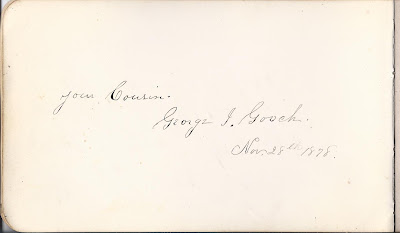 your Cousin.
George I. Gooch.
Nov. 28th 1878.